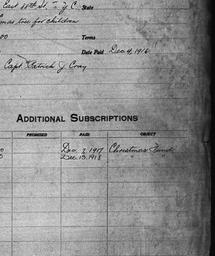 East 88th St. N.Y.C. State
mas tree for children
00 Terms
Date Paid Dec. 4, 1916
Capt. Patrick J. Cray
ADDITIONAL SUBSCRIPTIONS
PROMISED PAID OBJECT
0 Dec. 3, 1917 Christmas Fund
5 Dec. 13, 1918 " "